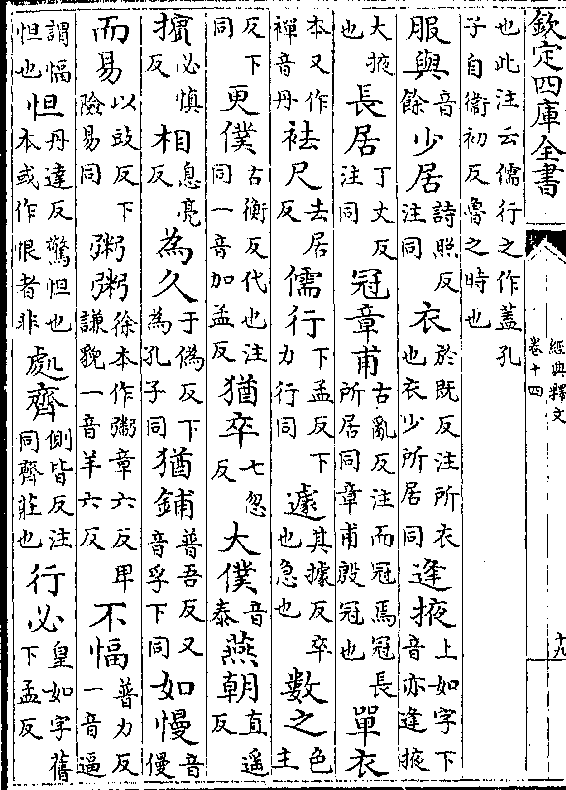 欽定四庫全書
經典釋文
卷十四
十九
也此注云儒行之作蓋孔子自衛初反魯之時也
服與音餘少居詩照反注同衣於既反注所衣也衣少所居同逢掖上如字下音亦逢掖
大掖也長居丁丈反注同冠章甫古亂反注而冠焉冠長所居同章甫殷冠也單衣
本又作襌音丹袪尺去居反儒行下孟反下力行同遽其據反卒也急也數之色主
反下同更僕古衡反代也注同一音加孟反猶卒七忽反大僕音泰燕朝直遥反
擯必慎反相息亮反為久于偽反下為孔子同猶鋪普吾反又音孚下同如慢音僈
而易以豉反下險易同粥粥徐本作粥章六反卑謙貌一音羊六反不愊普力反一音逼
謂愊怛也怛丹達反驚怛也本或作恨者非處齊側皆反注同齊莊也行必皇如字舊下孟反